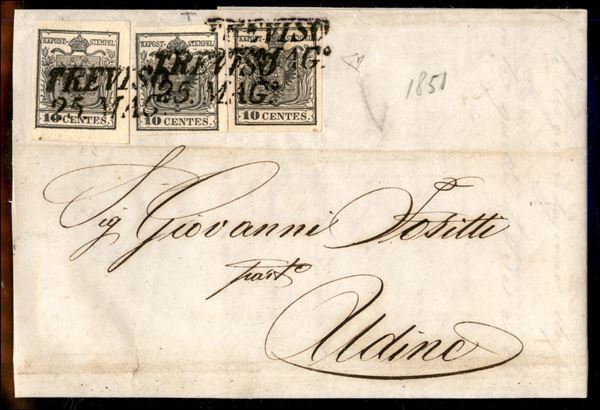 KKPOST-STEMPEL
KKPOST-STEMPEL
KKPOST-STEMPEL
TREVISO
TREVISO
TREVISO
25. MAG
25. MAG.º
MAG.º
10 CENTES.
10 CENTES.
10 CENTES.
1851
Sig Giovanni Tositti
Udine